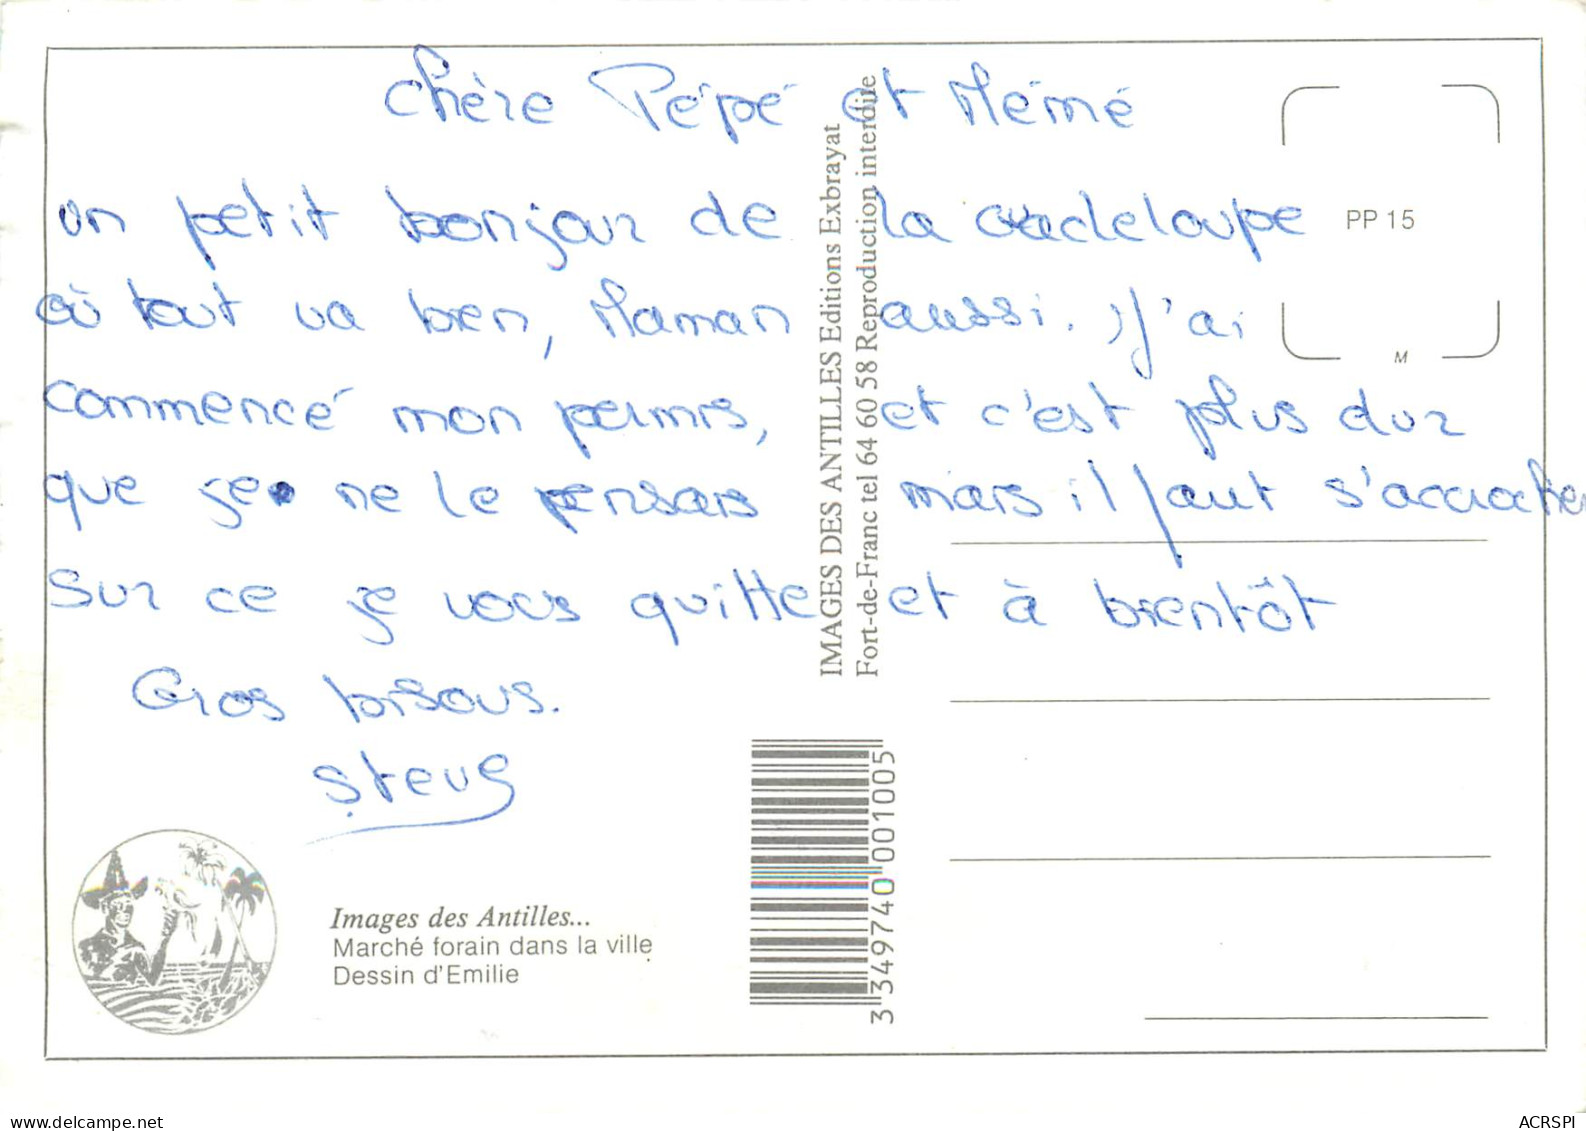 Chère Pépé et Mémé
un petit bonjour de la Guadeloupe
où tout va bien, Maman aussi. J'ai
commencé mon permis, et c'est plus dur
que je ne le pensais mais il faut s'accrocher
Sur ce je vous quitte et à bientôt
Gros bisous.
Steve
PP 15
M
IMAGES DES ANTILLES Editions Exbrayat
Fort-de-Franc tel 64 60 58 Reproduction interdite
3 349740 001005
Images des Antilles...
Marché forain dans la ville
Dessin d'Emilie
delcampe.net
ACRSPI